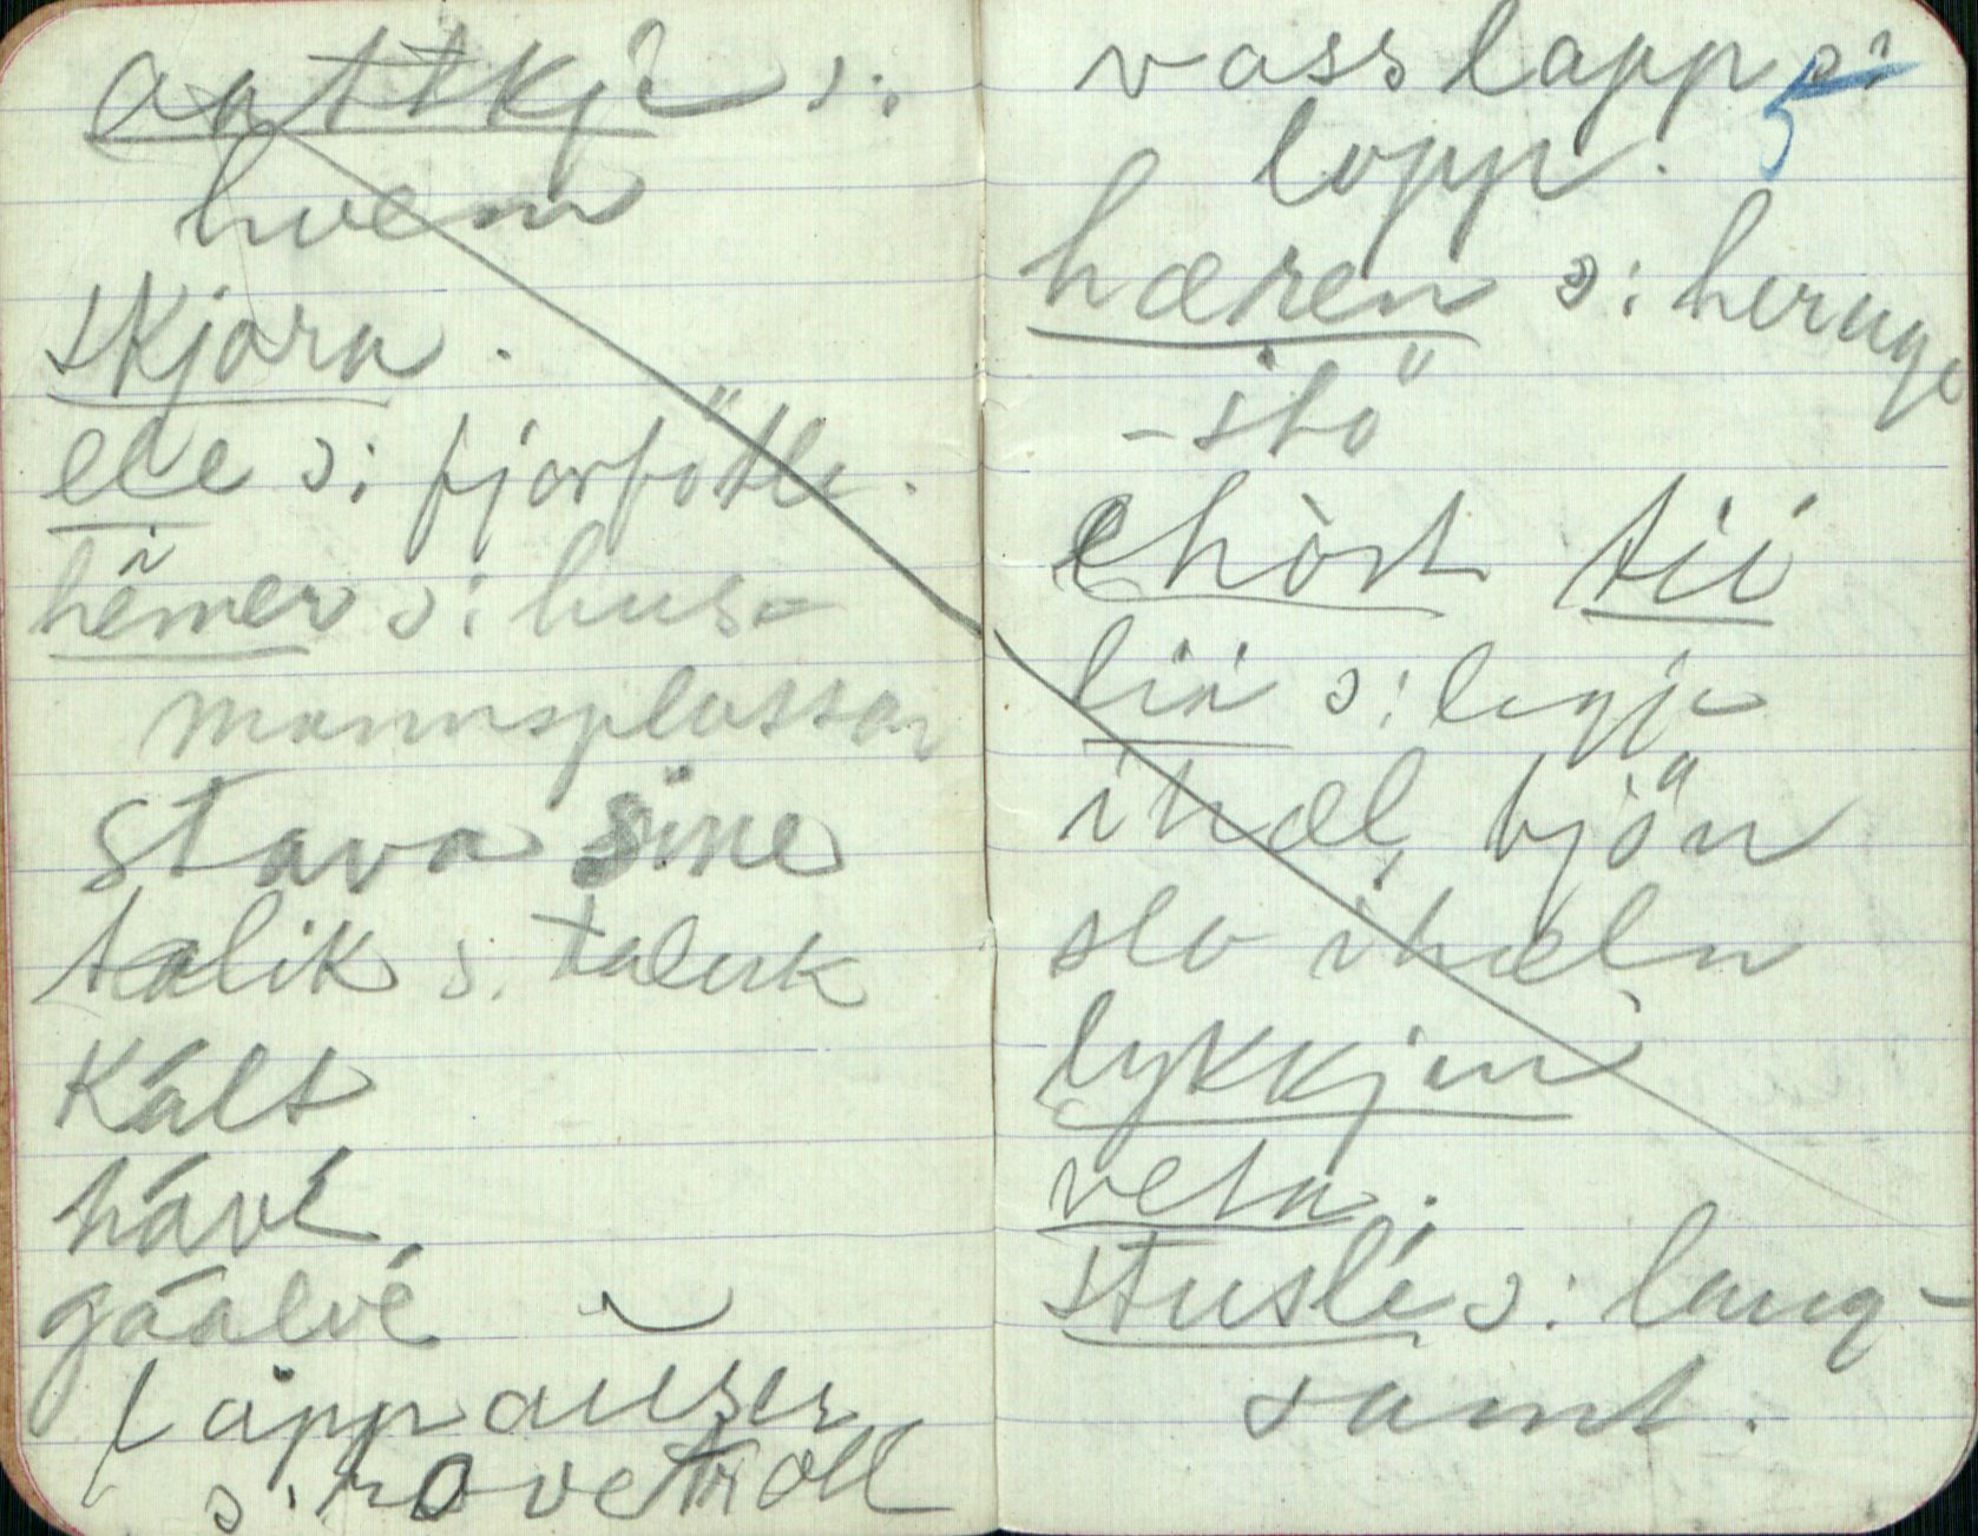 aattkjè ɔ:
hvem
skjora.
ele ɔ: fjorfötle.
hemer ɔ: hus-
mannsplassar
stava sine
talik ɔ: talerk
kált
hávé
gáalvé
lappauser
ɔ: rovetroll
vasslapp ɔ:
lopp. 5
hæren ɔ: herúge
-stö
ehòrt tii
lii ɔ: legje
ihæl, bjön
slo ihæln
lykkjin
veta.
stuslé ɔ: lang-
samt.